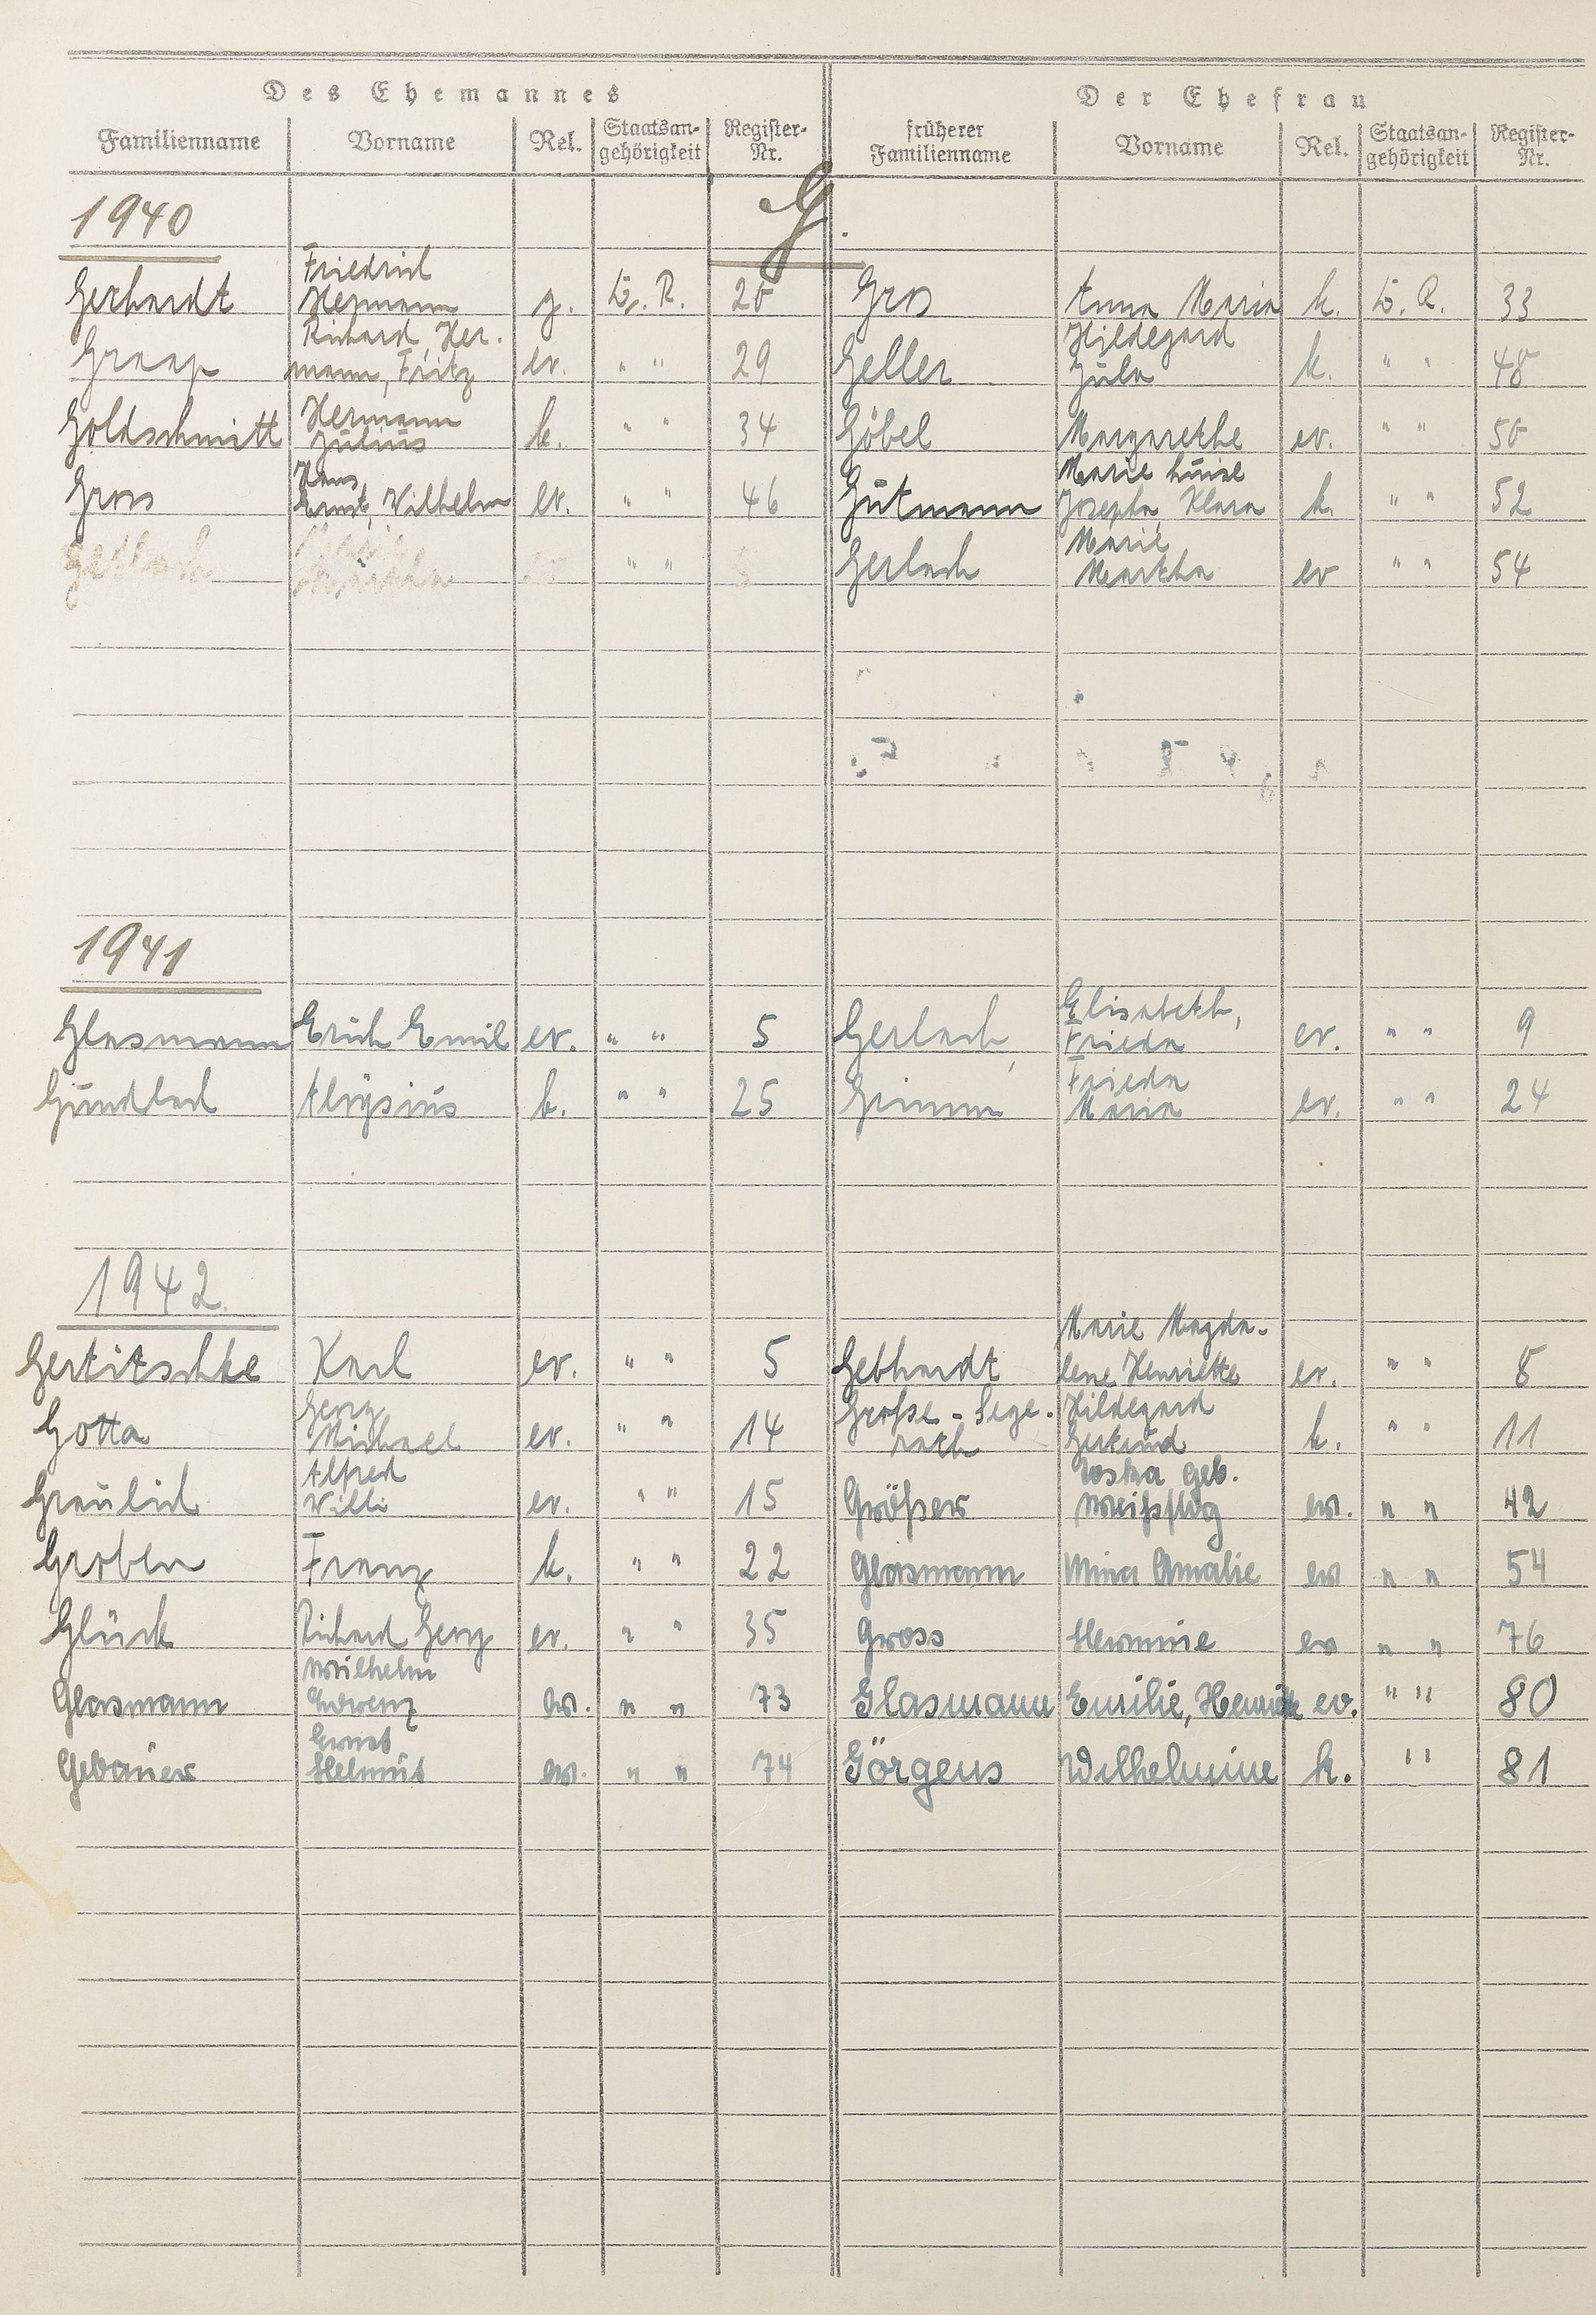 Des Ehemannes Der Ehefrau
Familienname Vorname Rel. Staatsan-gehörigkeit Register-Nr. früherer Familienname Vorname Rel. Staatsan-gehörigkeit Register-Nr.
G.
1940
Gerhardt Friedrich Hermann g. D. R. 28 Gros Anna Maria k. D. R. 33
Graap Richard, Her-mann, Fritz ev. " " 29 Geller Hildegard Jula k. " " 48
Goldschmitt Hermann Julius k. " " 34 Göbel Margarethe ev. " " 50
Gros Hans Ernst, Wilhelm ev. " " 46 Gutmann Marie Luise Josepha, Klara k. " " 52
Gerlach Martha " " 5 Gerlach Marie Martha ev " " 54
1941
Glasmann Erich Emil ev. " " 5 Gerlach, Elisabeth, Frieda ev. " " 9
Gundlach Aloysius k. " " 25 Grimm Frieda Maria ev. " " 24
1942.
Gertitschke Karl ev. " " 5 Gebhardt Marie Magda-lene Henriette ev. " " 8
Gotta Georg Michael ev. " " 14 Große-Sege-rath Hildegard Gertrud k. " " 11
Graulich Alfred Willi ev. " " 15 Größer geb. Weißflog ev. " " 42
Groben Franz k. " " 22 Glasmann Mina Amalie ev " " 54
Glück Richard Georg ev. " " 35 Gross Hermine ev " " 76
Glasmann Wilhelm Lorenz ev. " " 73 Glasmann Emilie, Henriette ev. " " 80
Gebauer Ernst Helmut ev. " " 74 Görgens Wilhelmine k. " 81